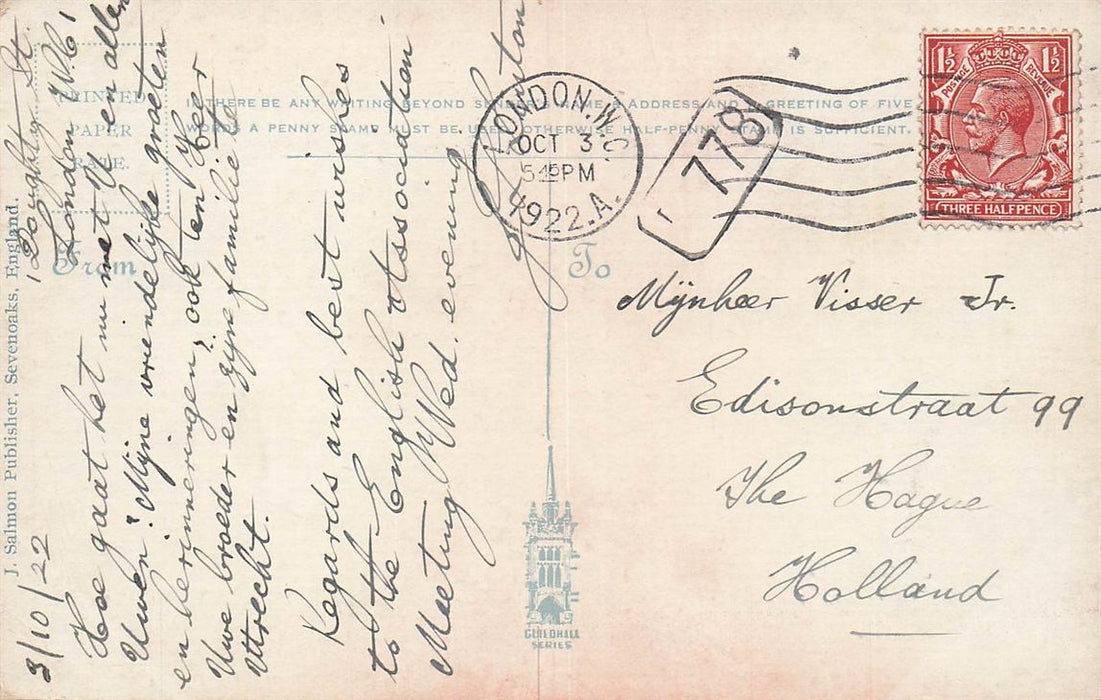 J. Salmon Publisher, Sevenoaks, England.
PRINTED
PAPER
RATE.
IF THERE BE ANY WRITING BEYOND SENDER'S NAME & ADDRESS AND A GREETING OF FIVE
WORDS A PENNY STAMP MUST BE USED, OTHERWISE HALF-PENNY STAMP IS SUFFICIENT.
From
To
GUILDHALL
SERIES
LONDON. W.C.
OCT 3
PM
1922. A.
778
1½ 1½
POSTAGE REVENUE
THREE HALFPENCE
Doughty St.
London WC1
3/10/22
Hoe gaat het nu met U en allen
Uwen? Mijne vriendelijke groeten
en herinneringen, ook ten Heer
Uwe broeder en zijne familie te
Utrecht.
Regards and best wishes
to the English Association
Meeting Wed. evening
Mijnheer Visser Jr.
Edisonstraat 99
The Hague
Holland